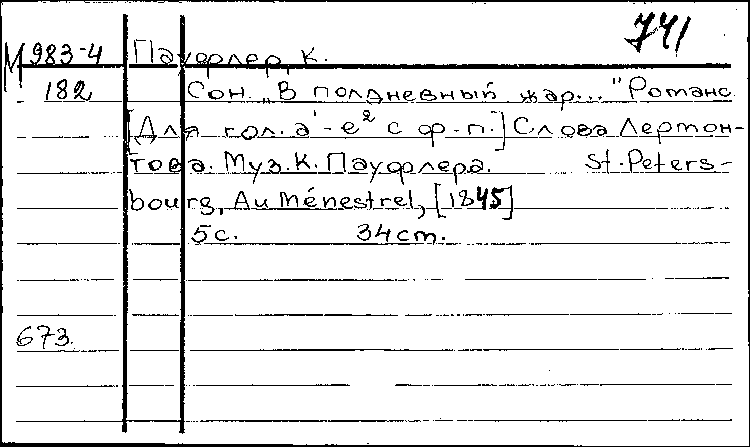 741
М 983-4 Пауфлер, К.
182 Сон. „В полдневный жар..." Романс
[Для гол. a¹-e² с ф-п.] Слова Лермон-
това. Муз. К. Пауфлера. St.-Peters-
bourg, Au Ménestrel, [1845]
5 с. 34 cm.
673.